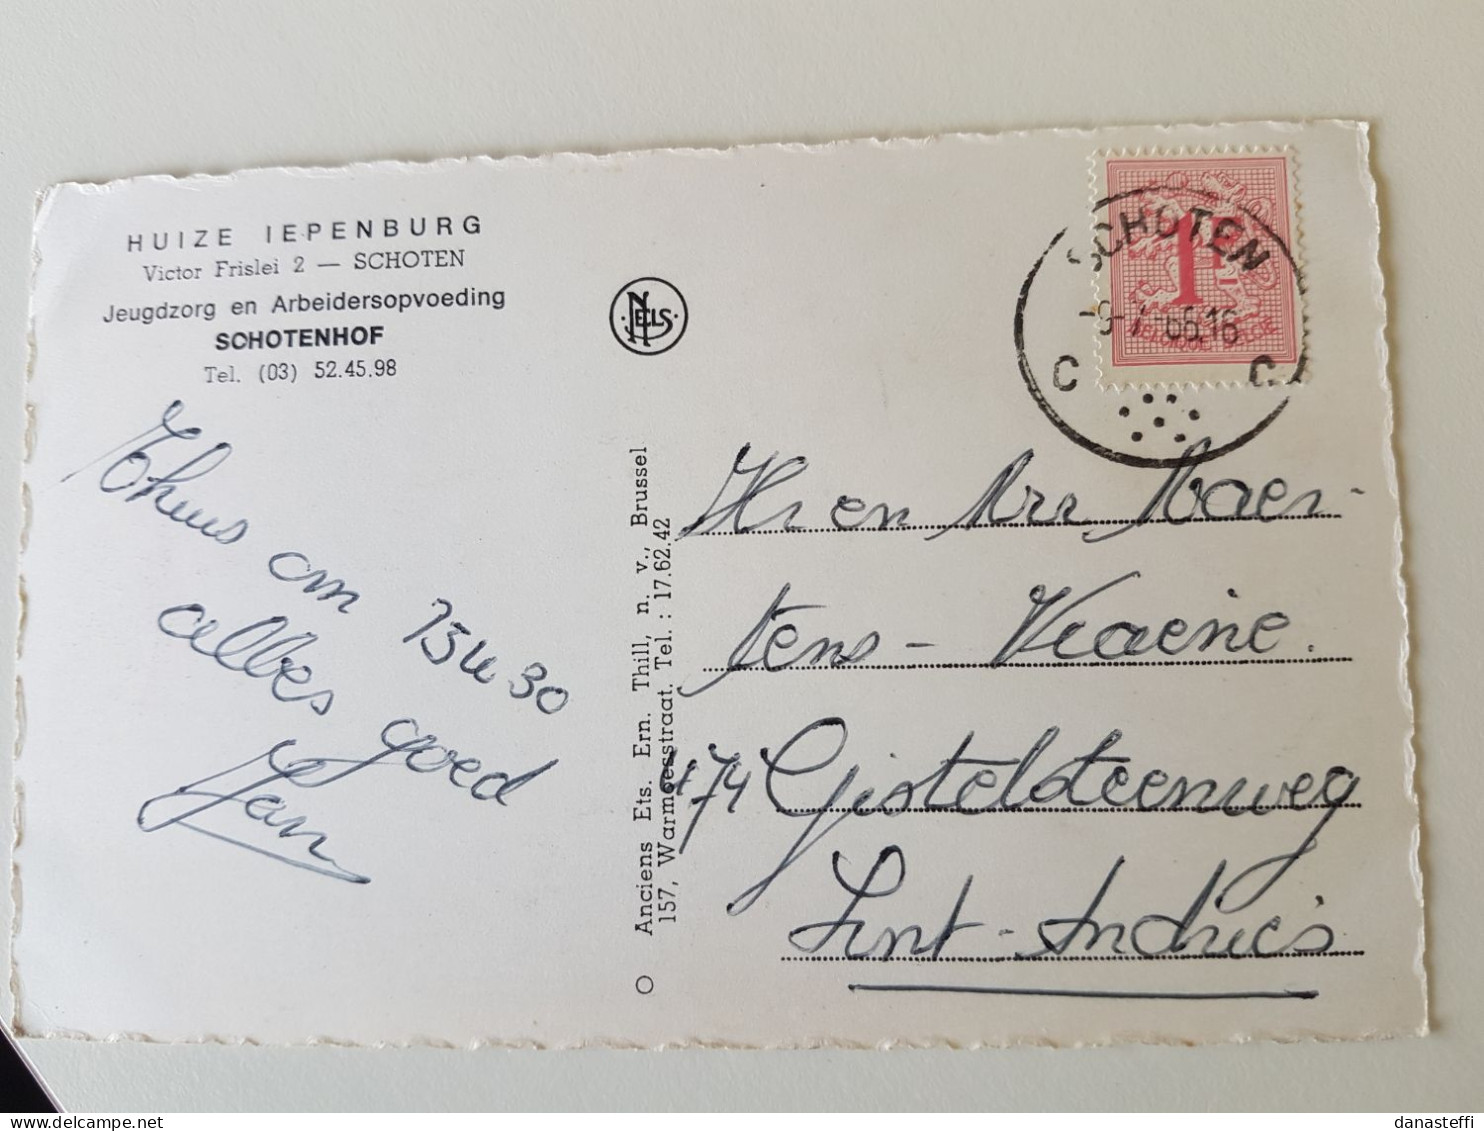 HUIZE IEPENBURG
Victor Frislei 2 — SCHOTEN
Jeugdzorg en Arbeidersopvoeding
SCHOTENHOF
Tel. (03) 52.45.98
Thuis om
13u 30
alles goed
Jan
NELS
Anciens Ets. Ern. Thill, n. v., Brussel
157, Warmoesstraat. Tel. : 17.62.42
SCHOTEN
66.16
C C
1F
BELGIQUE BELGIE
Hr en Mvr Maer-
tens - Vraene.
474 Gistelsteenweg
Sint-Andries
delcampe.net
danasteffi